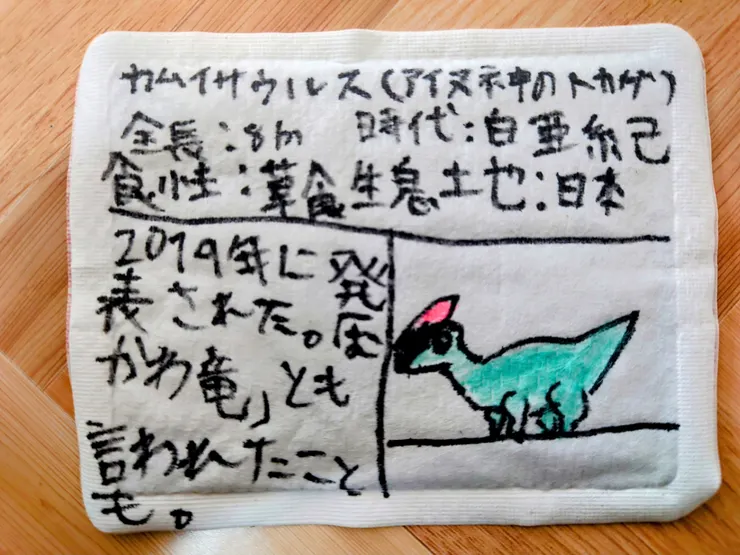 カムイサウルス(アイヌ神のトカゲ)
全長:8m 時代:白亜紀
食性:草食生息地:日本
2019年に発
表された。む
かわ竜」とも
言われたこと
も。